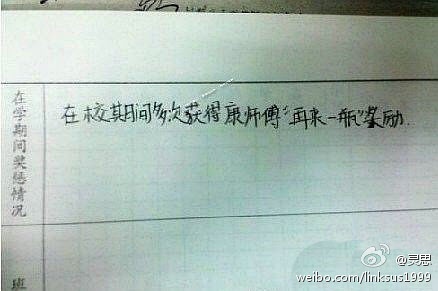 在学期间奖惩情况
在校期间多次获得康师傅“再来一瓶”奖励.
班
@灵思
weibo.com/linksus1999